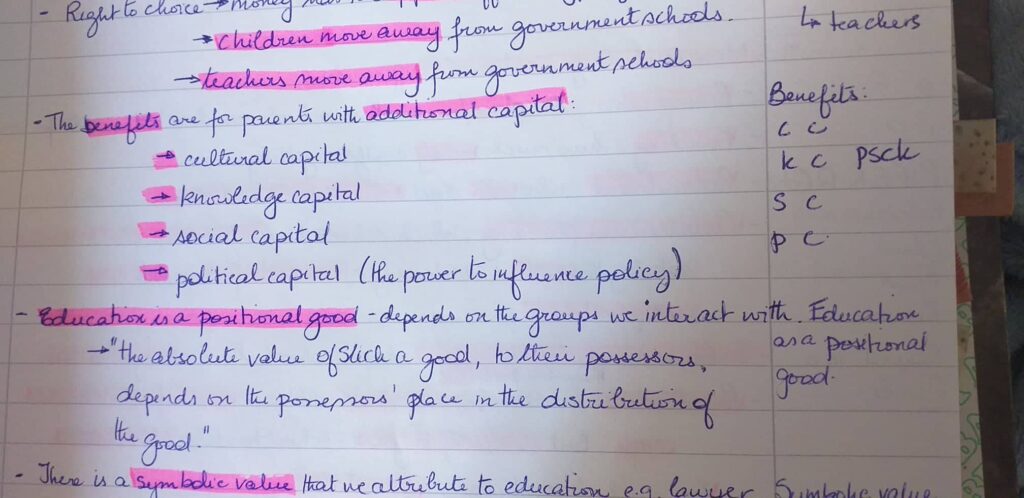 - Right to choice → money
→ children move away from government schools.
↳ teachers
→ teachers move away from government schools
- The benefits are for parents with additional capital:
Benefits:
→ cultural capital
C C
→ knowledge capital
K C PSCK
→ social capital
S C
→ political capital (the power to influence policy)
P C
- Education is a positional good - depends on the groups we interact with.
Education
as a positional
good.
→ "the absolute value of such a good, to their possessors,
depends on the possessors' place in the distribution of
the good."
- There is a symbolic value that we attribute to education e.g. lawyer
Symbolic value